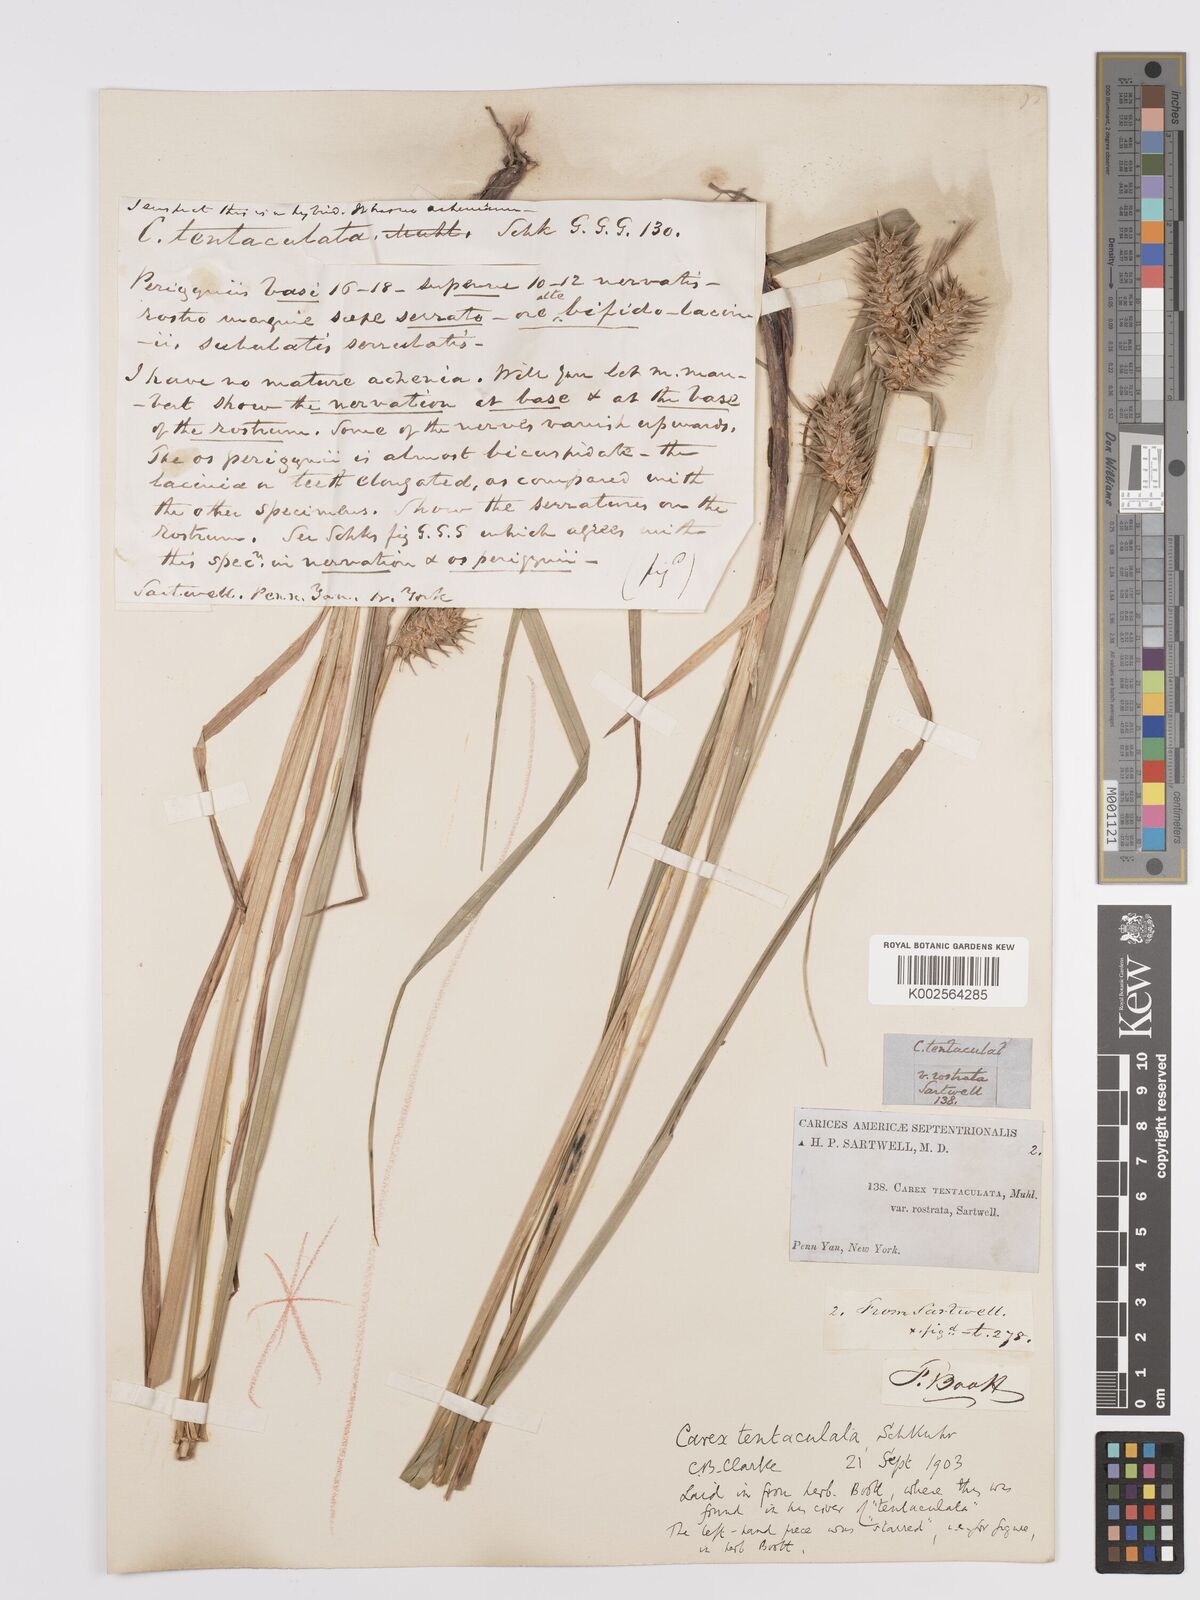 I suspect this is a hybrid. It has no achenium_
C. tentaculata. Muhl. Schk G.G.G. 130.
Perigyniis basi 16-18- superne 10-12 nervatis-
rostro margine sæpe serrato - ore alte bifido - lacini
-is, subulatis serrulatis-
I have no mature achenia. Will you let M. Mau-
-bert show the nervation at base & at the base
of the rostrum. Some of the nerves vanish upwards.
The os perigynii is almost bicuspidate - the
laciniæ or teeth elongated, as compared with
the other specimens. Show the serratures on the
rostrum. See Schk's fig G.G.G which agrees with
this specn. in nervation & os perigynii-
(figd)
Sartwell. Penn. Yan. N. York
ROYAL BOTANIC GARDENS KEW
K002564285
C. tentaculat
v. rostrata
Sartwell
138.
CARICES AMERICÆ SEPTENTRIONALIS
▲ H. P. SARTWELL, M. D. 2.
138. CAREX TENTACULATA, Muhl.
var. rostrata, Sartwell.
Penn Yan, New York.
2. From Sartwell.
& figd - t. 278.
F. Boott
Carex tentaculata, Schkuhr
CB. Clarke 21 Sept 1903
Laid in from herb. Boott, where they was
found in his cover of "tentaculata"
The left-hand piece was "starred", for figure,
in herb Boott.
inches
Don Williams
M001121
centimeters
Kew
Royal Botanic Gardens
0 1 2 3 4 5 6 7 8 9 10
cm
copyright reserved